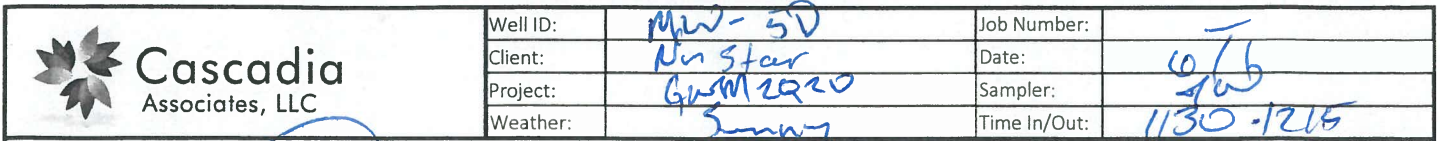 Cascadia
Associates, LLC
Well ID: MW-5D Job Number: —
Client: NuStar Date: 6/6
Project: GWM2Q20 Sampler:
Weather: Sunny Time In/Out: 1130-1215